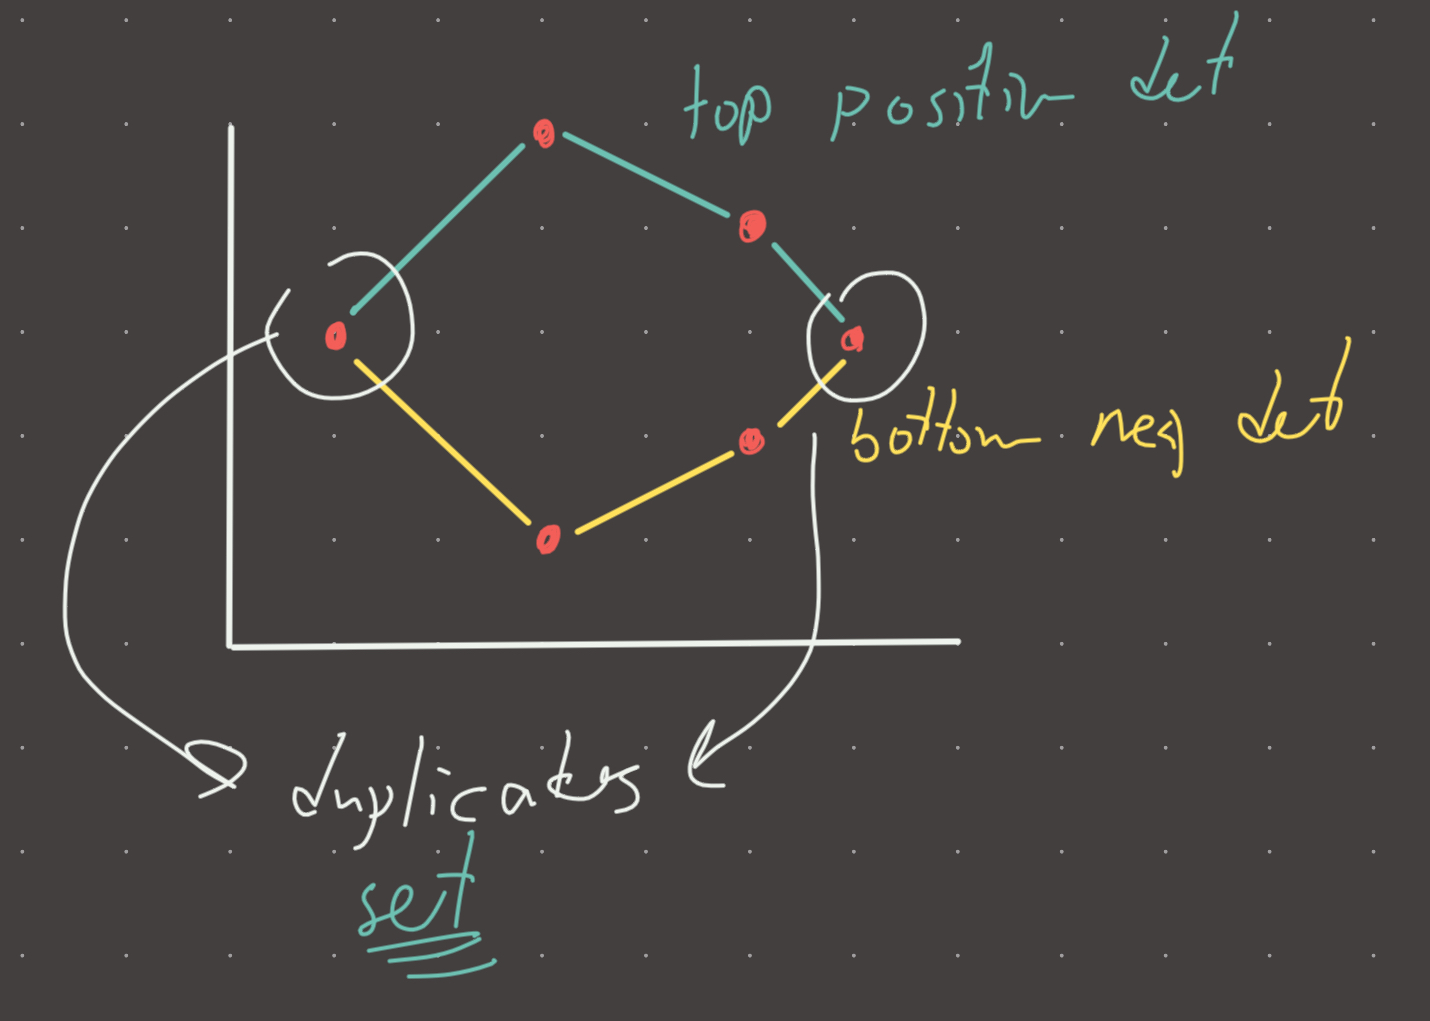 top position det
bottom neg det
duplicates
set